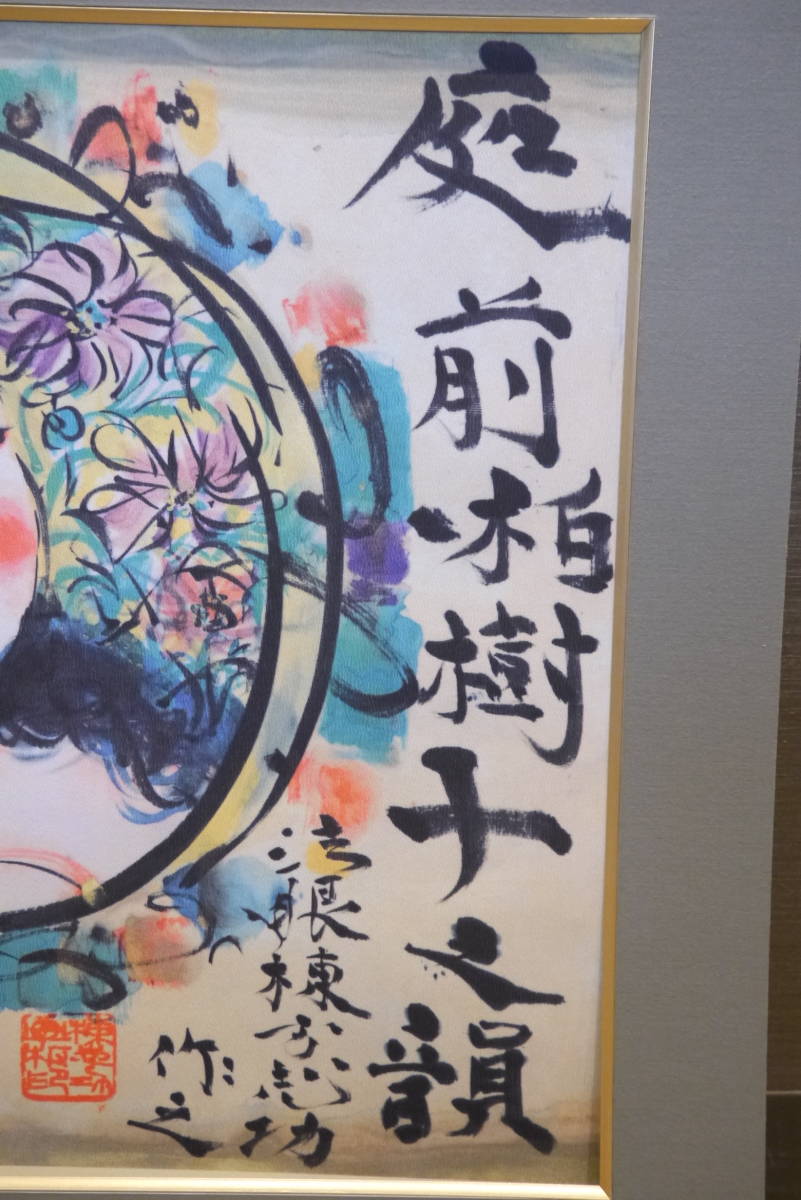 庭前柏樹子之韻
法眼棟方志功
作之